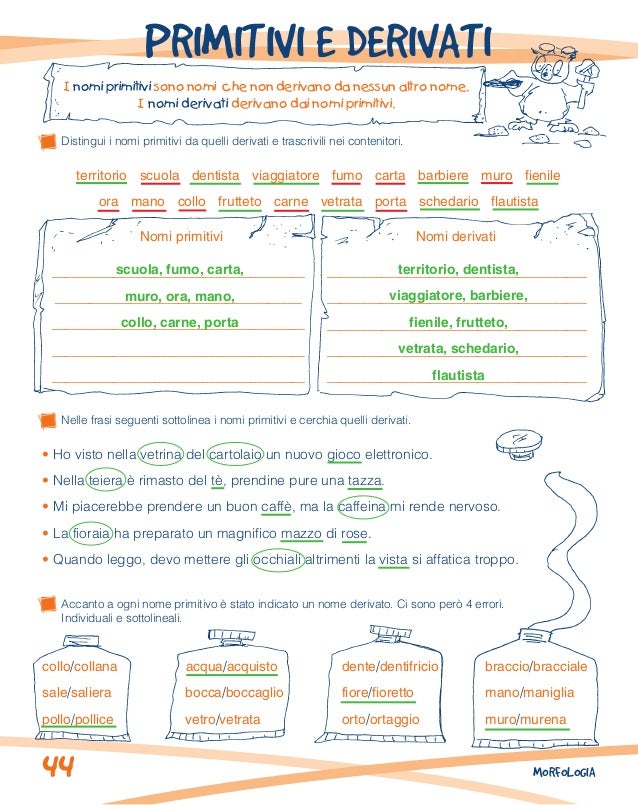 PRIMITIVI E DERIVATI
I nomi primitivi sono nomi che non derivano da nessun altro nome.
I nomi derivati derivano dai nomi primitivi.
Distingui i nomi primitivi da quelli derivati e trascrivili nei contenitori.
territorio scuola dentista viaggiatore fumo carta barbiere muro fienile
ora mano collo frutteto carne vetrata porta schedario flautista
Nomi primitivi
scuola, fumo, carta,
muro, ora, mano,
collo, carne, porta
Nomi derivati
territorio, dentista,
viaggiatore, barbiere,
fienile, frutteto,
vetrata, schedario,
flautista
Nelle frasi seguenti sottolinea i nomi primitivi e cerchia quelli derivati.
• Ho visto nella vetrina del cartolaio un nuovo gioco elettronico.
• Nella teiera è rimasto del tè, prendine pure una tazza.
• Mi piacerebbe prendere un buon caffè, ma la caffeina mi rende nervoso.
• La fioraia ha preparato un magnifico mazzo di rose.
• Quando leggo, devo mettere gli occhiali altrimenti la vista si affatica troppo.
Accanto a ogni nome primitivo è stato indicato un nome derivato. Ci sono però 4 errori.
Individuali e sottolineali.
collo/collana
sale/saliera
pollo/pollice
acqua/acquisto
bocca/boccaglio
vetro/vetrata
dente/dentifricio
fiore/fioretto
orto/ortaggio
braccio/bracciale
mano/maniglia
muro/murena
44
MORFOLOGIA